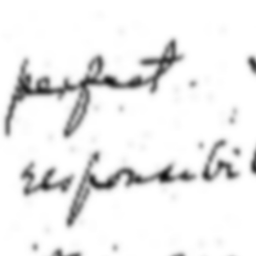 perfect.
responsibil